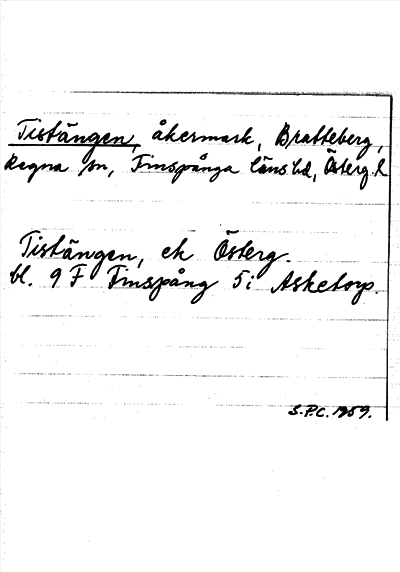 Tistängen, åkermark, Bratteberg,
Regna sn, Finspånga läns hd, Österg. l.
Tistängen, ek Österg.
bl. 9 F Finspång 5 i Asketorp.
S.P.C. 1959.